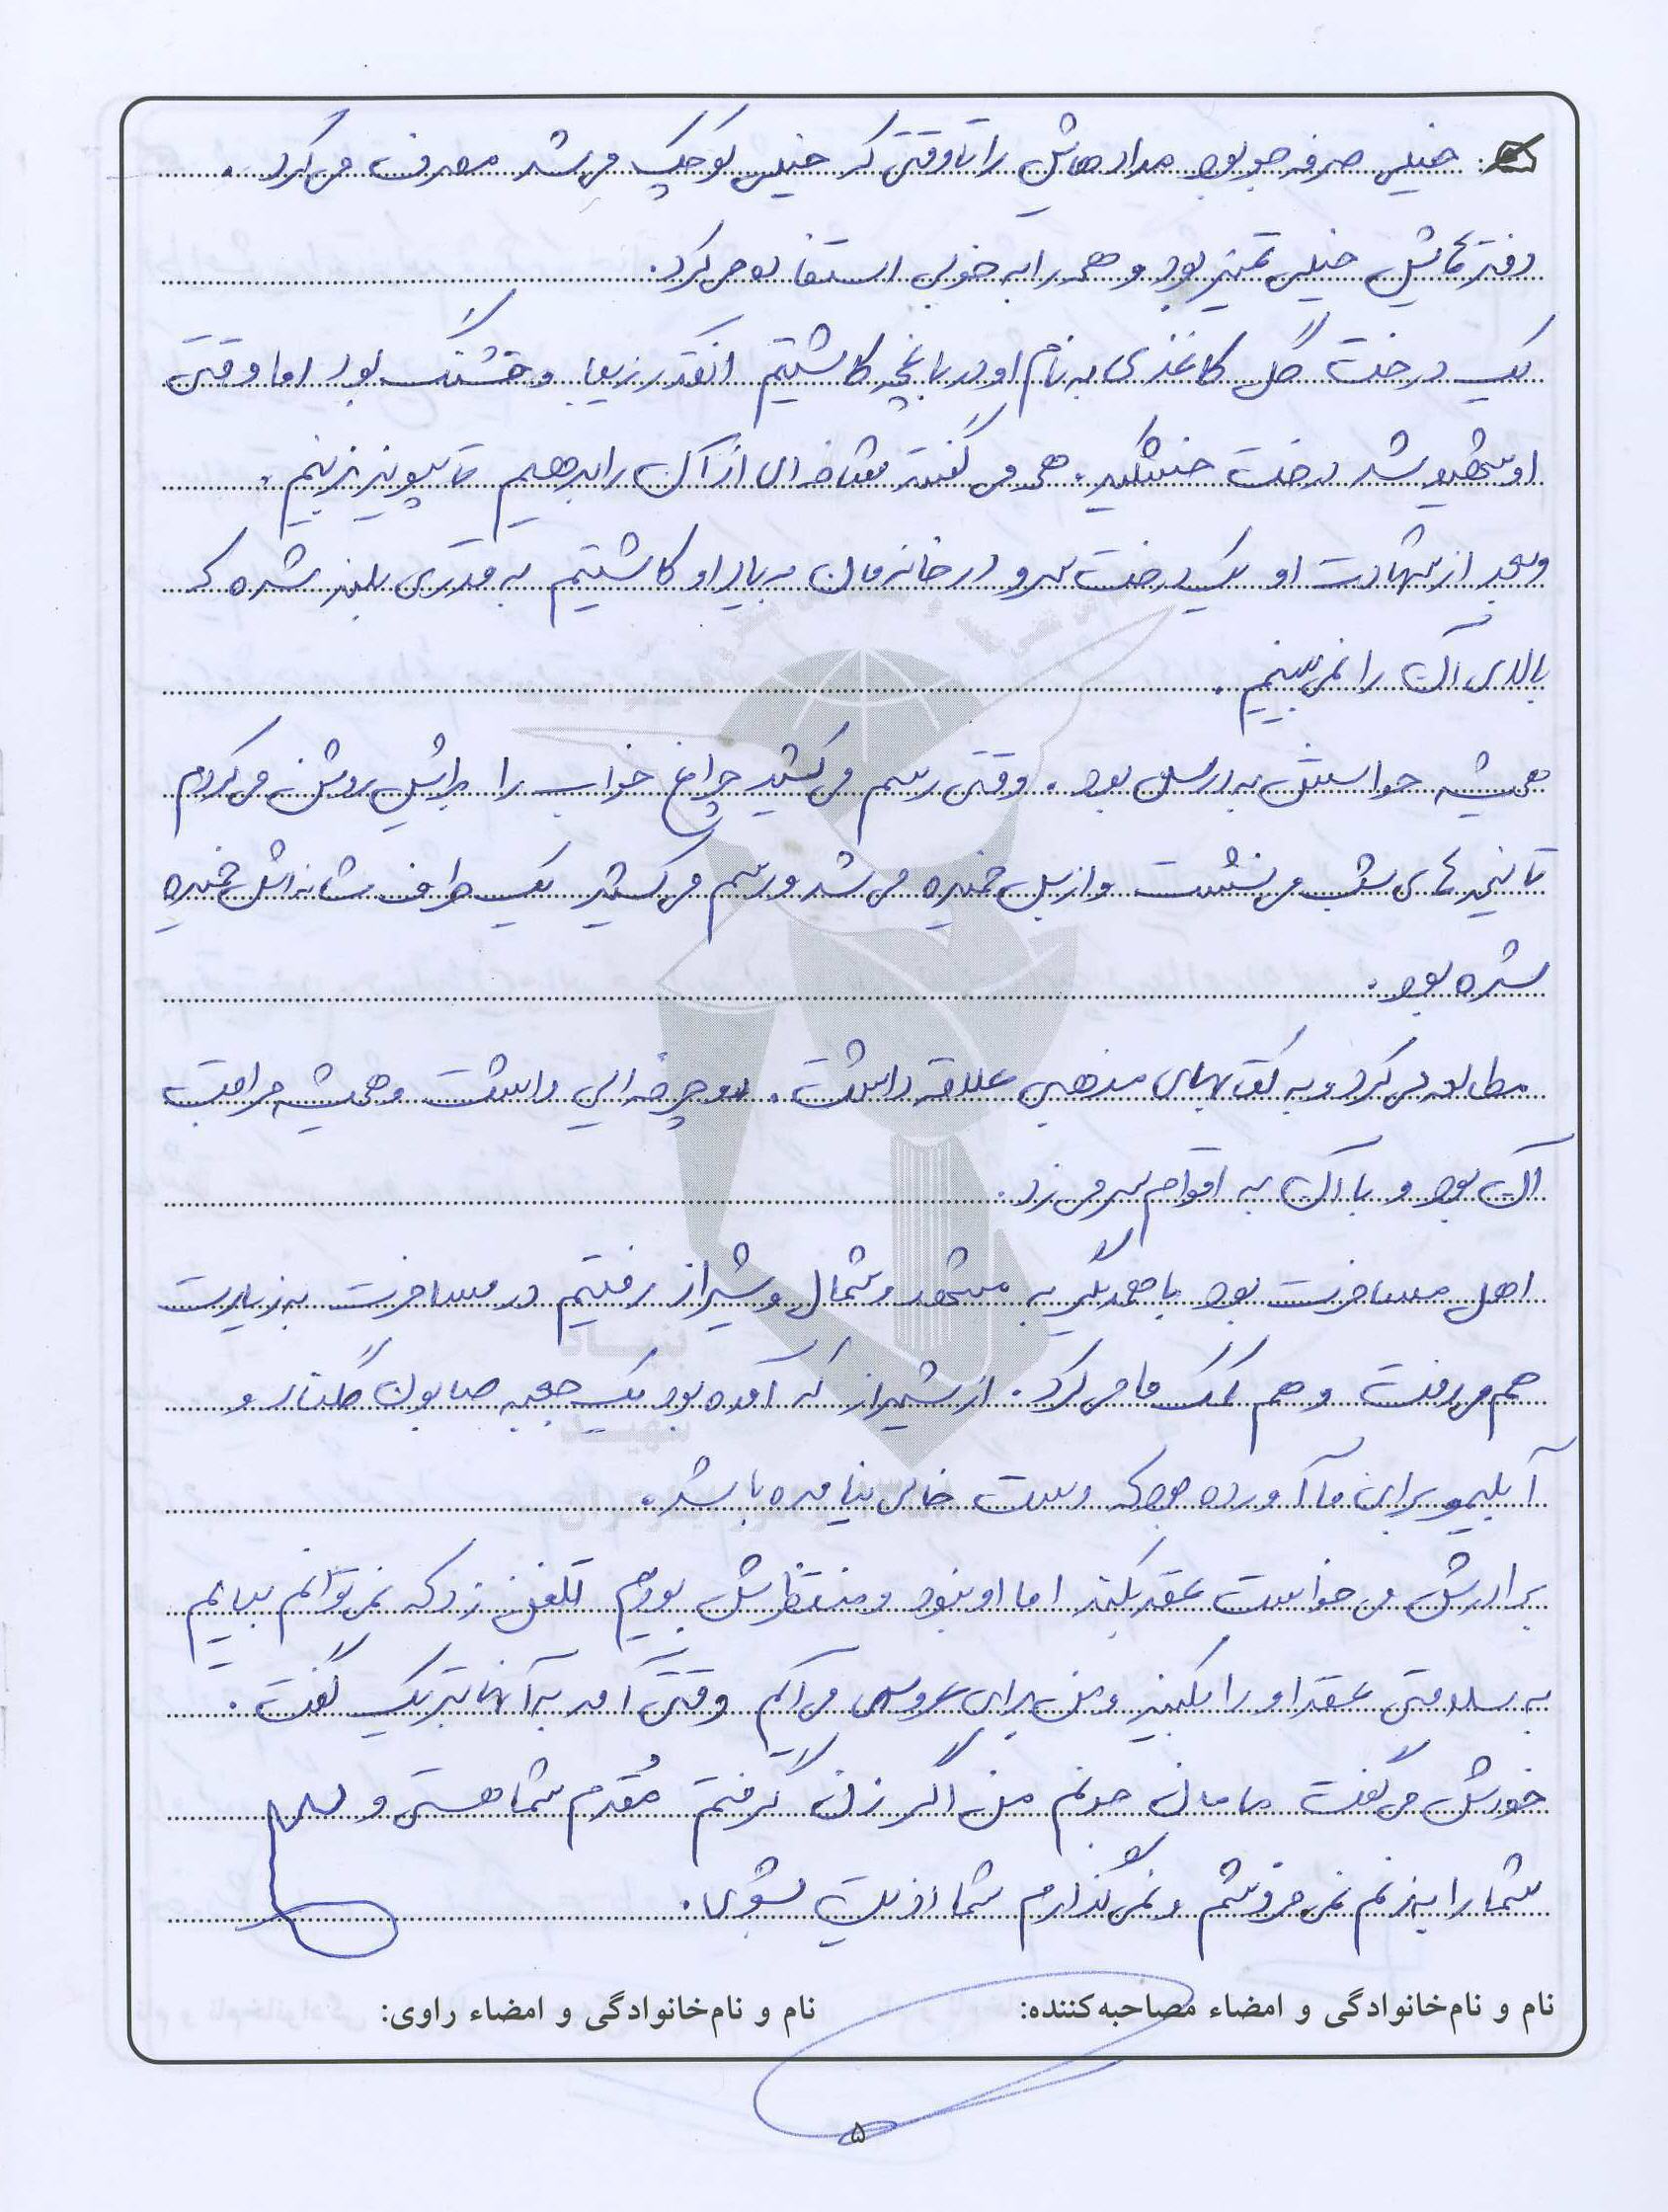 خیلی صرفه جو بود مدادهایش را تا وقتی که خیلی کوچک می شد مصرف می کرد.
دفترهایش خیلی تمیز بود و همه را به خوبی استفاده می کرد.
یک درخت گل کاغذی به نام او در باغچه کاشتیم انقدر زیبا و قشنگ بود اما وقتی
او شهید شد درخت خشکید. همه می گفتند شاخه ای از آن را بدهیم تا پیوند بزنیم.
و بعد از شهادت او یک درخت سرو در خانه مان به یاد او کاشتیم به قدری بلند شده که
بالای آن را نمی بینیم.
همیشه حواسش به درسش بود. وقتی رسم می کشید چراغ خواب را برایش روشن می کردم
تا نیمه های شب می نشست و از بس خمیده می شد و رسم می کشید یک طرف شانه اش خمیده
شده بود.
مطالعه می کرد و به کتابهای مذهبی علاقه داشت. دوچرخه ای داشت و همیشه مراقب
آن بود و با آن به اقوام سر می زد.
اهل مسافرت بود با همدیگر به مشهد و شمال و شیراز رفتیم در مسافرت به زیارت
هم می رفت و هم کمک ما می کرد. از شیراز که آمده بود یک جعبه صابون گلنار و
آبلیمو برای ما آورده بود که دست خالی نیامده باشد.
برادرش می خواست عقد بکند اما او نبود و منتظرش بودیم تلفن زد که نمی توانم بیایم
به سلامتی عقد او را بکنید و من برای عروسی می آیم وقتی آمد به آنها تبریک گفت.
خودش می گفت مامان جونم من اگر زن گرفتم مُقدم شما هستی و
شما را به زنم نمی فروشم و نمی گذارم شما اذیت بشوی.
نام و نام‌خانوادگی و امضاء مصاحبه‌کننده: نام و نام‌خانوادگی و امضاء راوی:
۵